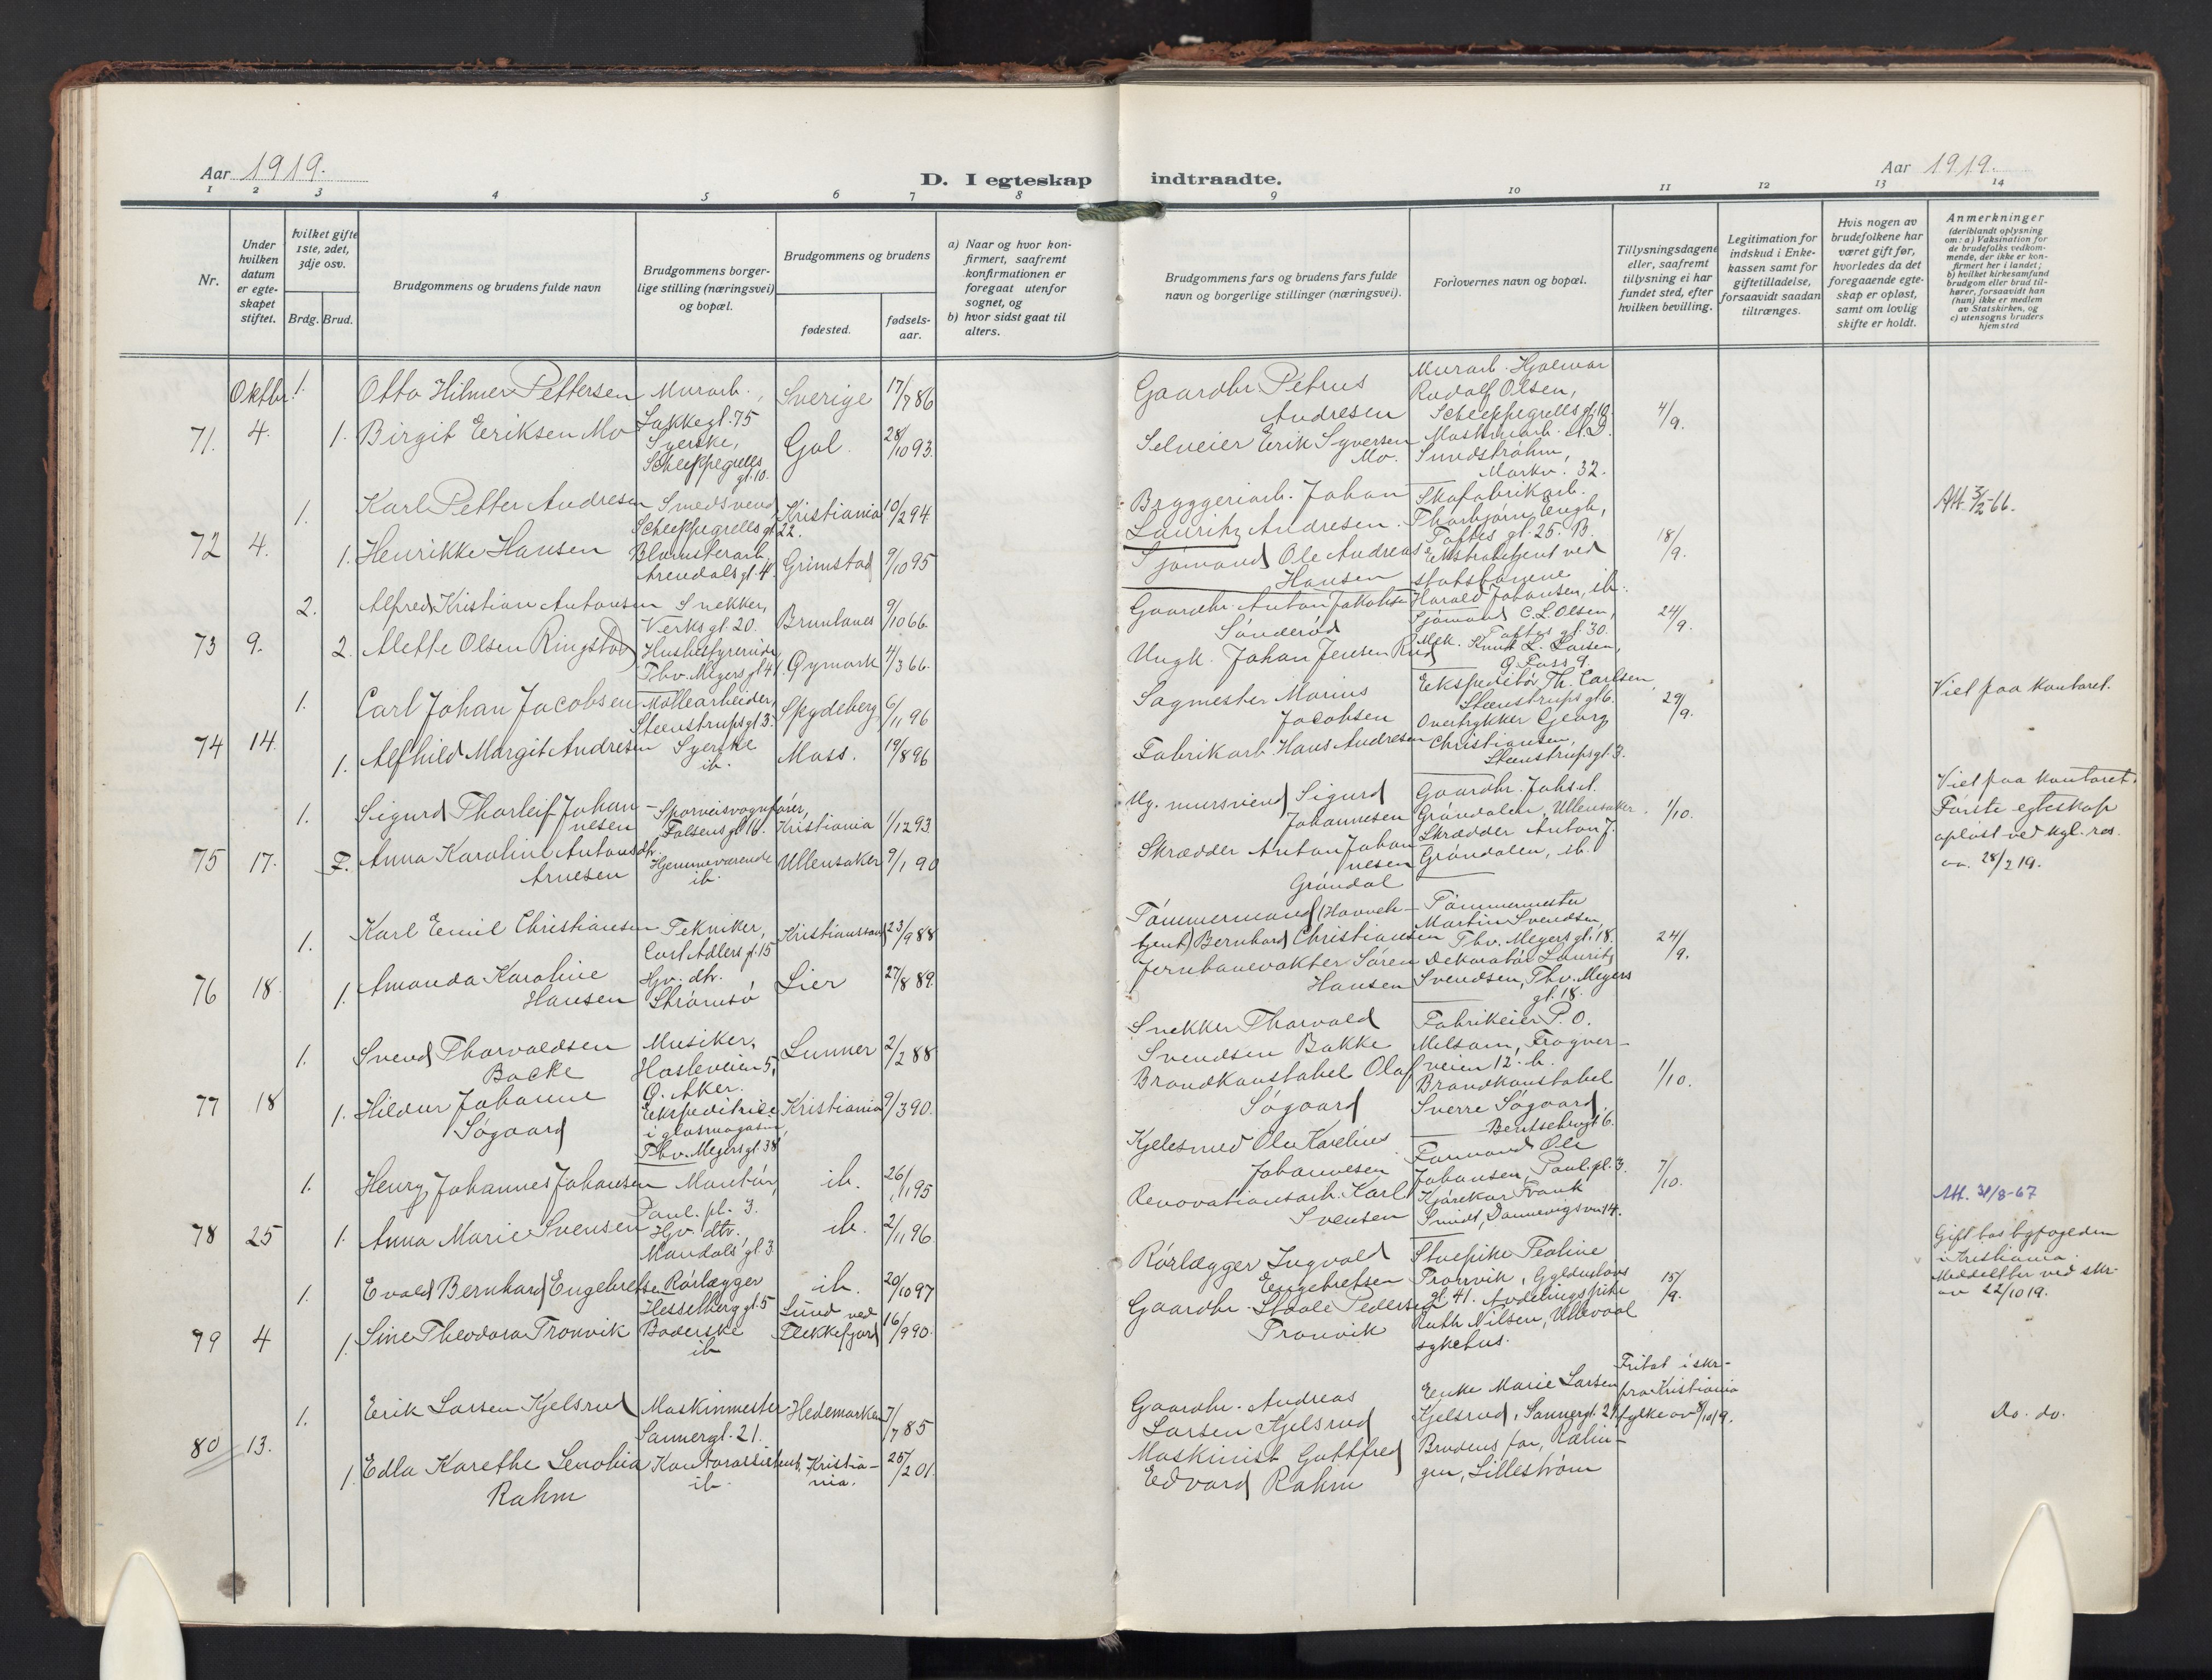 Aar 1919.
D. I egteskap indtraadte.
Aar 1919.
1 2 3 4 5 6 7 8 9 10 11 12 13 14
Nr.
Under hvilken datum er egteskapet stiftet.
hvilket gifte 1ste, 2det, 3dje osv.
Brdg. Brud.
Brudgommens og brudens fulde navn
Brudgommens borgerlige stilling (næringsvei) og bopæl.
Brudgommens og brudens
fødested.
fødselsaar.
a) Naar og hvor konfirmert, saafremt konfirmationen er foregaat utenfor sognet, og
b) hvor sidst gaat til alters.
Brudgommens fars og brudens fars fulde navn og borgerlige stillinger (næringsvei).
Forlovernes navn og bopæl.
Tillysningsdagene eller, saafremt tillysning ei har fundet sted, efter hvilken bevilling.
Legitimation for indskud i Enkekassen samt for giftetilladelse, forsaavidt saadan tiltrænges.
Hvis nogen av brudefolkene har været gift før, hvorledes da det foregaaende egteskap er opløst, samt om lovlig skifte er holdt.
Anmerkninger
(deriblandt oplysning om: a) Vaksination for de brudefolks vedkommende, der ikke er konfirmert her i landet; b) hvilket kirkesamfund brudgom eller brud tilhører, forsaavidt han (hun) ikke er medlem av Statskirken, og c) utensogns bruders hjemsted
71. Oktbr. 4.
1. Otto Hilmer Pettersen Murarb., Lakkegt. 75 Sverige 17/7 86
1. Birgit Eriksen Mo Syerske, Schleppegrells gt. 10. Gol. 28/10 93.
Gaardbr. Petrus Andresen
Selveier Erik Syversen Mo.
Murarb. Hjalmar Rudolf Olsen, Schleppegrells gt. 10.
Maskinarb. A. D. Sundstrøhm, Markv. 32.
4/9.
72 4.
1. Karl Petter Andresen Smedsvend Schleppegrells gt 22. Kristiania 10/2 94
1. Henrikke Hansen Blomsterarb. Arendals gt. 4 Grimstad 9/10 95
Bryggeriarb. Johan Lauritz Andresen.
Sjømand Ole Andreas Hansen
Skofabrikarb. Thorbjørn Engh, Toftes gt. 25. B.
Ekstrabetjent ved statsbanene Harald Johansen, ib.
18/9.
Att. 3/2-66.
73 9.
2. Alfred Kristian Antonsen Snekker, Verksgt. 20. Brunlanes 9/10 66.
2. Alette Olsen Ringstad Husbestyrerinde Thv. Meyers gt 41. Øymark 4/3 66.
Gaardbr. Anton Jakobsen Sønderød
Ungk. Johan Jensen Rud
Sjømand C. L. Olsen, Toftes gt. 30.
Mek. Knut L. Larsen, Ø. Foss 9.
24/9.
74 14.
1. Carl Johan Jacobsen Møllearbeider, Steenstrupsgt 3. Spydeberg 6/11 96
1. Alfhild Margit Andresen Syerske ib. Moss. 19/8 96
Sagmester Marius Jacobsen
Fabrikarb. Hans Andresen
Ekspeditør Th. Carlsen, Steenstrupsgt 6.
Overtrykker Georg Christiansen, Steenstrupsgt 3.
29/9.
Viet paa kontoret.
75 17.
1. Sigurd Thorleif Johannesen Sporveisvognfører, Falsens gt 16. Kristiania 1/12 93.
F. Anna Karoline Antonsdtr. Arnesen Hjemmeværende ib. Ullensaker 9/1 90
Ug. mursvend Sigurd Johannesen
Skrædder Anton Johannesen Grøndal
Gaardbr. Johs. A. Grøndalen, Ullensaker.
Skrædder Anton J. Grøndalen, ib.
1/10.
Viet paa kontoret. Første egteskap opløst ved kgl. res. av. 28/2 19.
76 18.
1. Karl Emil Christiansen Tekniker, Carl Adlers gt. 15 Kristianssand 23/9 88
1. Amanda Karoline Hansen Hjv. dtr. Strømsø Lier 27/8 89.
Tømmermand (Havnebtjent) Bernhard Christiansen
Jernbanevokter Søren Hansen
Tømmermester Martin Svendsen, Thv. Meyers gt. 18.
Dekoratør Lauritz Svendsen, Thv. Meyers gt. 18.
24/9.
77 18
1. Svend Thorvaldsen Backe Musiker, Hasleveien 5, Ø. Aker. Lunner 2/2 88
1. Hildur Johanne Søgaard Ekspeditrice i glasmagasin, Thv. Meyers gt. 38 Kristiania 9/3 90.
Snekker Thorvald Svendsen Bakke
Brandkonstabel Olaf Søgaard
Fabrikeier P. O. Melsom, Frognerveien 12. b.
Brandkonstabel Sverre Søgaard, Bentsebrugt. 6.
1/10.
78 25
1. Henry Johannes Johansen Montør, Paul. pl. 3. ib. 26/1 95
1. Anna Marie Svensen Hjv. dtr. Mandals gt. 3 ib. 2/11 96.
Kjelesmed Ole Karelius Johannesen
Renovationsarb. Karl Svensen
Formand Ole Johansen, Paul. pl. 3.
Kjørekar Frank Smidt, Dannevigsvn 14.
7/10.
Att. 31/8-67
79 4
1. Evald Bernhard Engebretsen Rørlægger Hesselberg gt. 5 ib. 20/10 97
1. Sine Theodora Tronvik Baderske ib Lund ved Flekkefjord 16/9 90.
Rørlægger Ingvald Engebretsen
Gaardbr. Staale Pedersen Tronvik
Stuepike Teoline Tronvik, Gyldenløves gt. 41.
Avdelingspike Ruth Nilsen, Ullevaal sykehus.
15/9.
Gift hos byfogeden i Kristiania. Meddelt her ved skr. av 22/10 19.
80 13.
1. Erik Larsen Kjelsrud Maskinmester Sannergt. 21. Hedemarken 7/7 85
1. Edla Karethe Senobia Rahm Kontorassistent, ib. Kristiania. 25/2 01.
Gaardbr. Andreas Larsen Kjelsrud
Maskinist Gottfred Edvard Rahm
Enke Marie Larsen Kjelsrud, Sannergt. 21
Brudens far, Rælingen, Lillestrøm
Fritat i skr. fra Kristiania fylke av 8/10 19.
Do. do.